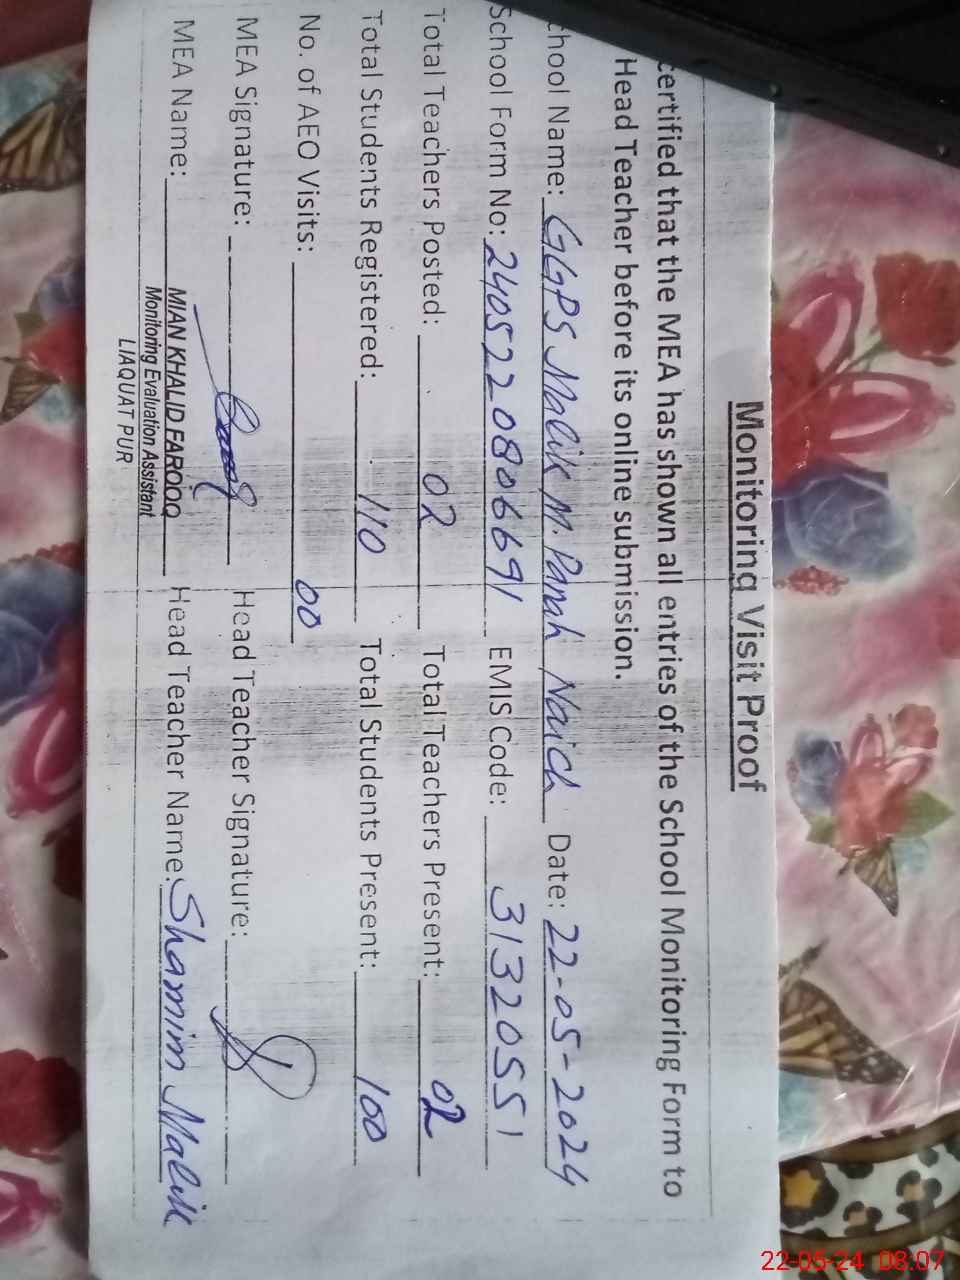 Monitoring Visit Proof
certified that the MEA has shown all entries of the School Monitoring Form to
Head Teacher before its online submission.
chool Name: GGPS Malik M. Panah Naich Date: 22-05-2024
School Form No: 24052208066 91 EMIS Code: 31320551
Total Teachers Posted: 02 Total Teachers Present: 02
Total Students Registered: 110 Total Students Present: 100
No. of AEO Visits: 00
MEA Signature: Head Teacher Signature:
MEA Name: MIAN KHALID FAROOQ Head Teacher Name: Shamim Malik
Monitoring Evaluation Assistant
LIAQUAT PUR
22-05-24 08:07